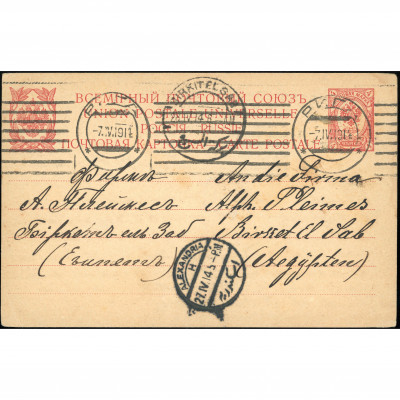 ВСЕМІРНЫЙ ПОЧТОВЫЙ СОЮЗЪ.
UNION POSTALE UNIVERSELLE
RUSSIE
ПОЧТОВАЯ КАРТОЧКА CARTE POSTALE
РИГА
-7.IV.1914
РИГА
-7.IV.1914
Фирмѣ
А. Плеймесъ
Биркетъ эль Заб
(Египетъ)
An die Firma
Alph. Pleimes
Birket El Sab
(Aegypten)
ALEXANDRIA
H
27.IV.14.5-PM